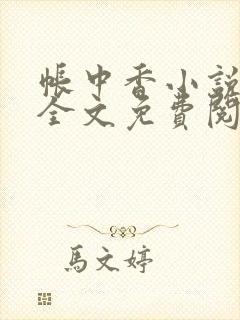 帳中香小說
全文免費閱
馬文婷